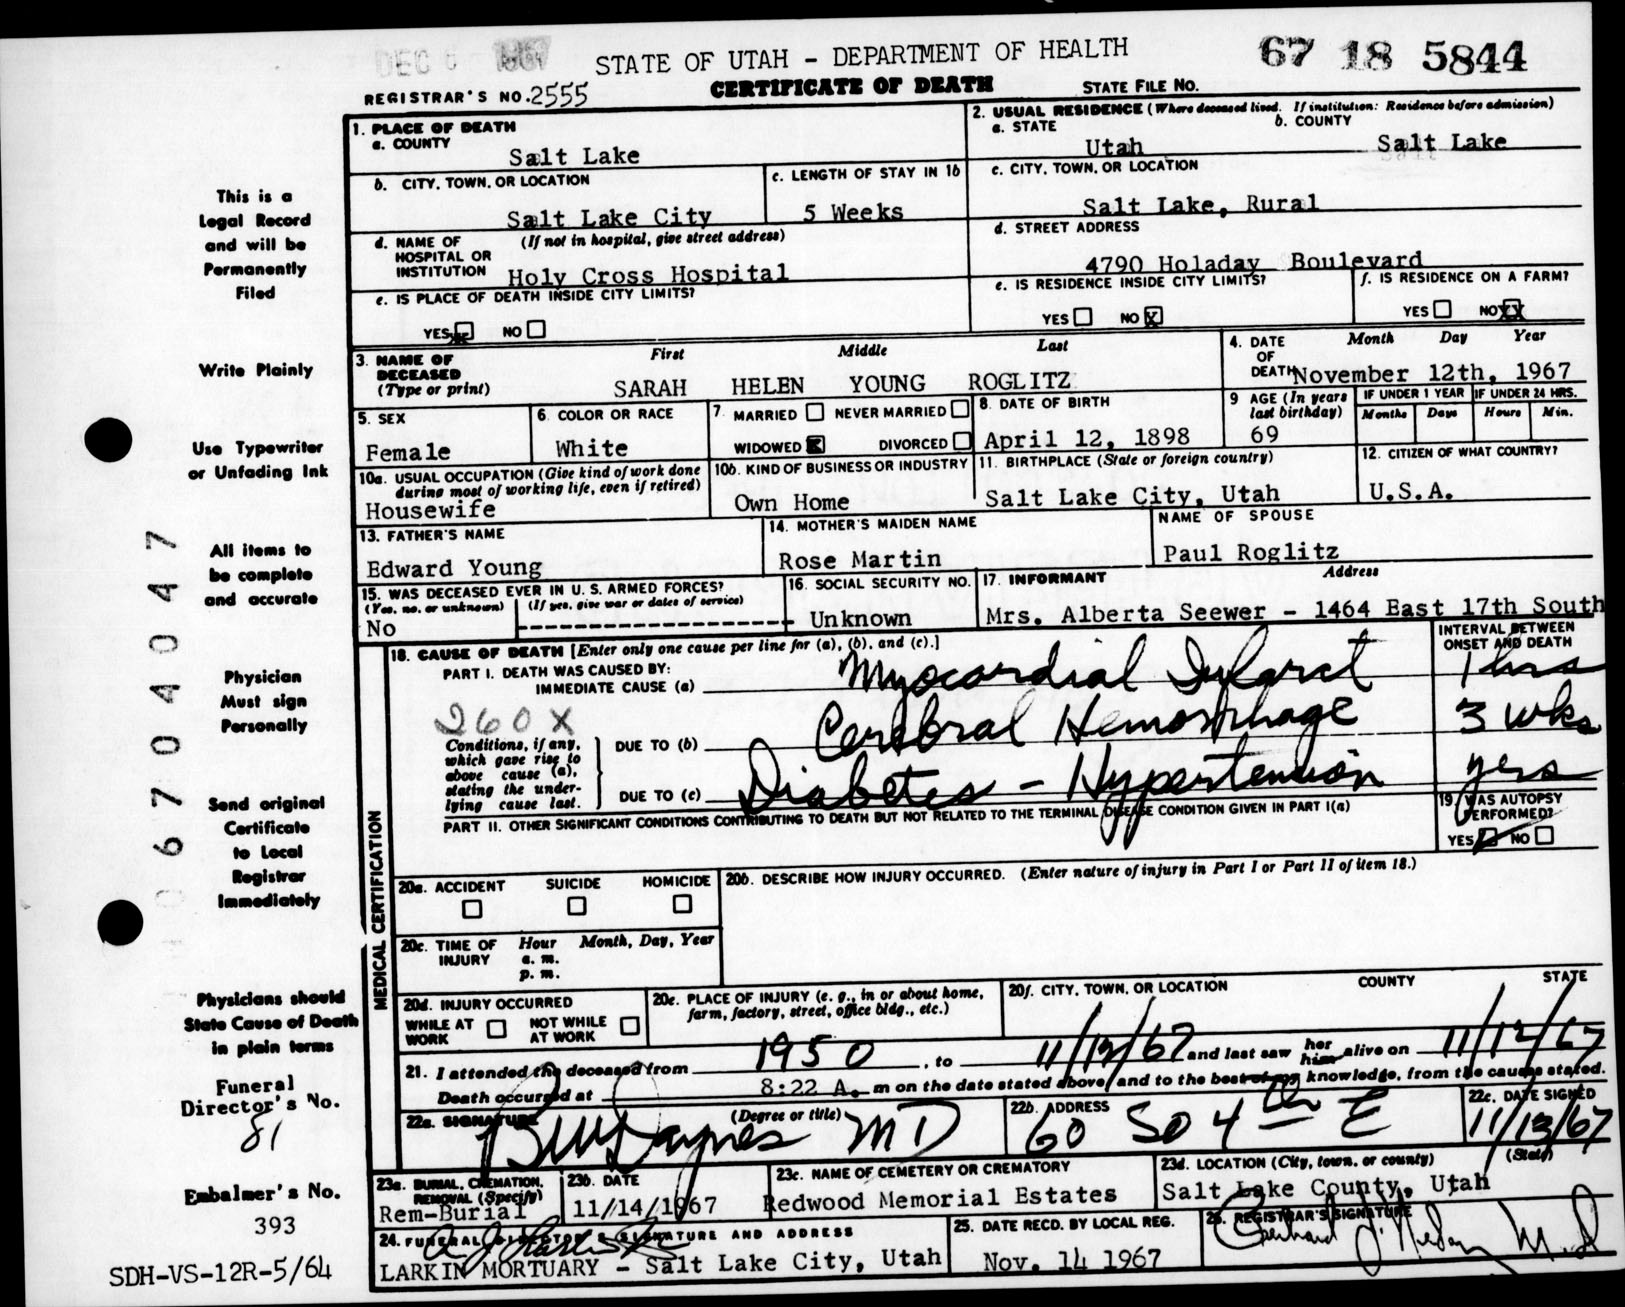 DEC 6 1967
STATE OF UTAH - DEPARTMENT OF HEALTH
67 18 5844
REGISTRAR'S NO. 2555
CERTIFICATE OF DEATH
STATE FILE NO.
1. PLACE OF DEATH
a. COUNTY
Salt Lake
2. USUAL RESIDENCE (Where deceased lived. If institution: Residence before admission)
a. STATE
b. COUNTY
Utah
Salt Lake
b. CITY, TOWN, OR LOCATION
Salt Lake City
c. LENGTH OF STAY IN 1b
5 Weeks
c. CITY, TOWN, OR LOCATION
Salt Lake, Rural
d. NAME OF HOSPITAL OR INSTITUTION
(If not in hospital, give street address)
Holy Cross Hospital
d. STREET ADDRESS
4790 Holaday Boulevard
e. IS PLACE OF DEATH INSIDE CITY LIMITS?
YES NO
e. IS RESIDENCE INSIDE CITY LIMITS?
YES NO X
f. IS RESIDENCE ON A FARM?
YES NO XX
3. NAME OF DECEASED
(Type or print)
First Middle Last
SARAH HELEN YOUNG ROGLITZ
4. DATE OF DEATH
Month Day Year
November 12th, 1967
5. SEX
Female
6. COLOR OR RACE
White
7. MARRIED NEVER MARRIED
WIDOWED X DIVORCED
8. DATE OF BIRTH
April 12, 1898
9 AGE (In years last birthday)
69
IF UNDER 1 YEAR
Months Days
IF UNDER 24 HRS.
Hours Min.
10a. USUAL OCCUPATION (Give kind of work done during most of working life, even if retired)
Housewife
10b. KIND OF BUSINESS OR INDUSTRY
Own Home
11. BIRTHPLACE (State or foreign country)
Salt Lake City, Utah
12. CITIZEN OF WHAT COUNTRY?
U.S.A.
13. FATHER'S NAME
Edward Young
14. MOTHER'S MAIDEN NAME
Rose Martin
NAME OF SPOUSE
Paul Roglitz
15. WAS DECEASED EVER IN U. S. ARMED FORCES?
(Yes, no, or unknown) (If yes, give war or dates of service)
No
16. SOCIAL SECURITY NO.
Unknown
17. INFORMANT
Address
Mrs. Alberta Seewer - 1464 East 17th South
MEDICAL CERTIFICATION
18. CAUSE OF DEATH [Enter only one cause per line for (a), (b), and (c).]
INTERVAL BETWEEN ONSET AND DEATH
PART I. DEATH WAS CAUSED BY:
IMMEDIATE CAUSE (a)
Myocardial Infarct
1 hrs
260X
Conditions, if any, which gave rise to above cause (a), stating the underlying cause last.
DUE TO (b)
Cerebral Hemorrhage
3 wks
DUE TO (c)
Diabetes - Hypertension
yrs
PART II. OTHER SIGNIFICANT CONDITIONS CONTRIBUTING TO DEATH BUT NOT RELATED TO THE TERMINAL DISEASE CONDITION GIVEN IN PART I(a)
19. WAS AUTOPSY PERFORMED?
YES NO
20a. ACCIDENT SUICIDE HOMICIDE
20b. DESCRIBE HOW INJURY OCCURRED. (Enter nature of injury in Part I or Part II of item 18.)
20c. TIME OF INJURY
Hour Month, Day, Year
a. m.
p. m.
20d. INJURY OCCURRED
WHILE AT WORK NOT WHILE AT WORK
20e. PLACE OF INJURY (e. g., in or about home, farm, factory, street, office bldg., etc.)
20f. CITY, TOWN, OR LOCATION COUNTY STATE
21. I attended the deceased from 1950, to 11/12/67 and last saw her him alive on 11/12/67
Death occurred at 8:22 A. m on the date stated above, and to the best of my knowledge, from the causes stated.
22a. SIGNATURE
(Degree or title)
MD
22b. ADDRESS
60 So 4th E
22c. DATE SIGNED
11/13/67
23a. BURIAL, CREMATION, REMOVAL (Specify)
Rem-Burial
23b. DATE
11/14/1967
23c. NAME OF CEMETERY OR CREMATORY
Redwood Memorial Estates
23d. LOCATION (City, town, or county) (State)
Salt Lake County, Utah
24. FUNERAL DIRECTOR'S SIGNATURE AND ADDRESS
LARKIN MORTUARY - Salt Lake City, Utah
25. DATE RECD. BY LOCAL REG.
Nov. 14 1967
26. REGISTRAR'S SIGNATURE
This is a
Legal Record
and will be
Permanently
Filed
Write Plainly
Use Typewriter
or Unfading Ink
All items to
be complete
and accurate
Physician
Must sign
Personally
Send original
Certificate
to Local
Registrar
Immediately
Physicians should
State Cause of Death
in plain terms
Funeral
Director's No.
81
Embalmer's No.
393
SDH-VS-12R-5/64
0 6 7 0 4 0 4 7